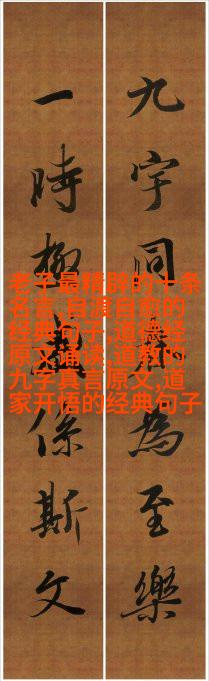 九宇同為至樂
一時係斯文
老子最精辟的十条
名言,自渡自愈的
经典句子,道德经
原文诵读,道教的
九字真言原文,道
家开悟的经典句子